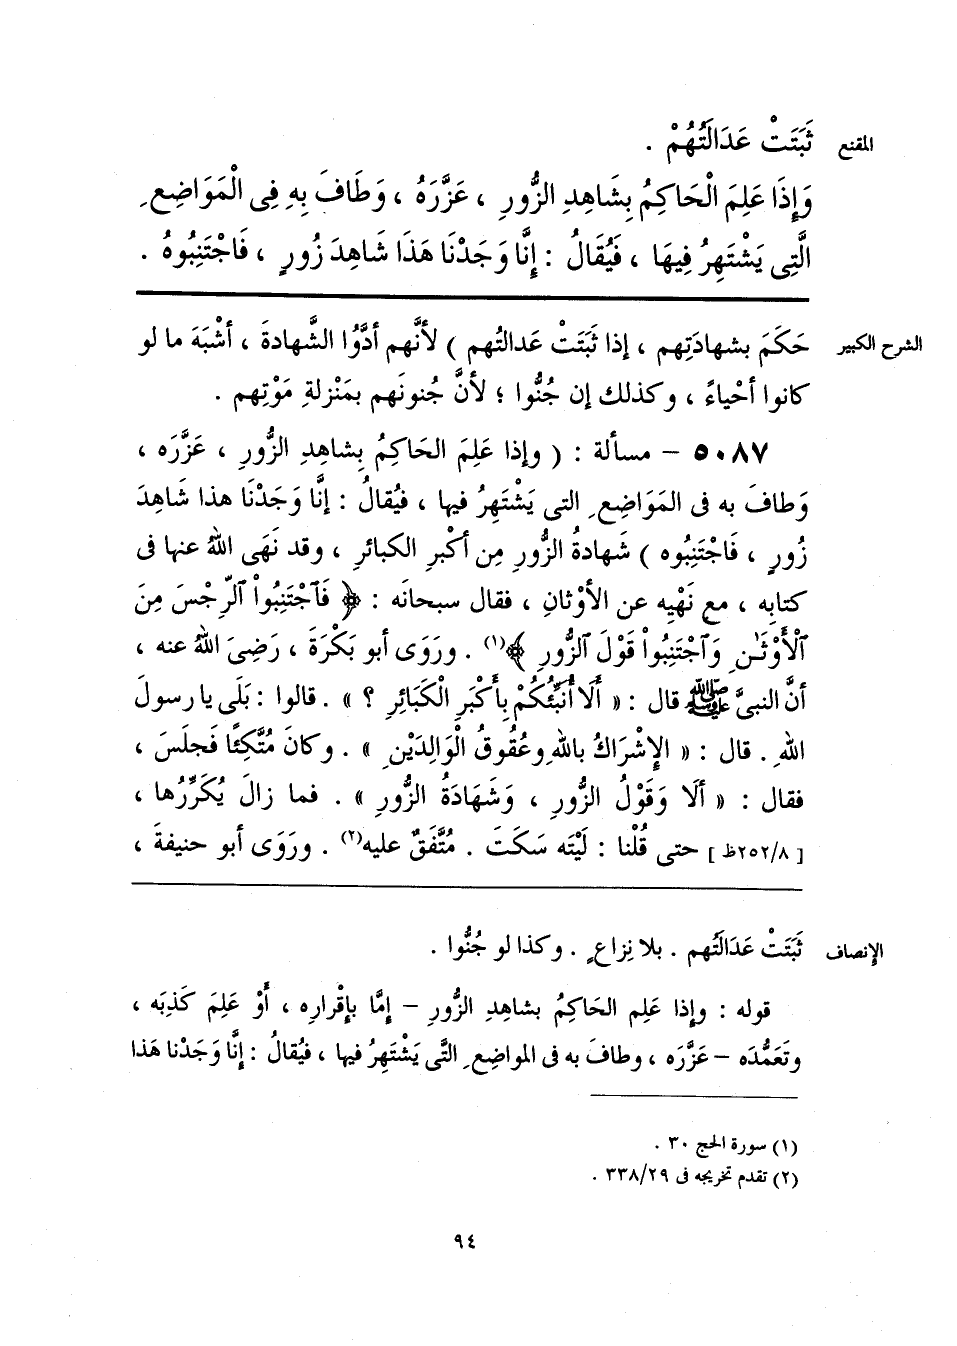 المقنع ثَبَتَتْ عَدَالَتُهُمْ .
وَإِذَا عَلِمَ الْحَاكِمُ بِشَاهِدِ الزُّورِ ، عَزَّرَهُ ، وَطَافَ بِهِ فِى الْمَوَاضِعِ
الَّتِى يَشْتَهِرُ فِيهَا ، فَيُقَالُ : إِنَّا وَجَدْنَا هَذَا شَاهِدَ زُورٍ ، فَاجْتَنِبُوهُ .
الشرح الكبير حَكَمَ بشهادَتِهم ، إذا ثَبَتَتْ عَدالتُهم ) لأنَّهم أدَّوُا الشَّهادةَ ، أشْبَهَ ما لو
كانوا أحْياءً ، وكذلك إن جُنُّوا ؛ لأنَّ جُنونَهم بمَنْزلةِ مَوْتِهم .
٥٠٨٧ – مسألة : ( وإذا عَلِمَ الحَاكِمُ بِشَاهِدِ الزُّورِ ، عَزَّرَه ،
وَطافَ به فى المَوَاضِعِ التى يَشْتَهِرُ فيها ، فيُقالُ : إنَّا وَجَدْنَا هذا شَاهِدَ
زُورٍ ، فَاجْتَنِبُوه ) شَهادةُ الزُّورِ مِن أكْبرِ الكبائرِ ، وقد نَهَى اللهُ عنها فى
كتابِه ، مع نَهْيِه عن الأوْثانِ ، فقال سبحانَه : ﴿ فَٱجْتَنِبُواْ ٱلرِّجْسَ مِنَ
ٱلْأَوْثَـٰنِ وَٱجْتَنِبُواْ قَوْلَ ٱلزُّورِ ﴾(١) . ورَوَى أبو بَكْرَةَ ، رَضِىَ اللهُ عنه ،
أنَّ النبىَّ ﷺ قال : « أَلَا أُنَبِّئُكُمْ بِأَكْبَرِ الْكَبَائِرِ ؟ » . قالوا : بَلَى يا رسولَ
اللهِ . قال : « الإِشْرَاكُ بالله‏ِ وعُقُوقُ الْوَالِدَيْنِ » . وكانَ مُتَّكِئًا فَجلَسَ ،
فقال : « ألَا وَقَوْلُ الزُّورِ ، وَشَهَادَةُ الزُّورِ » . فما زالَ يُكَرِّرُها ،
[ ٢٥٢/٨ظ ] حتى قُلْنا : لَيْتَه سَكَتَ . مُتَّفَقٌ عليه(٢) . ورَوَى أبو حنيفةَ ،
الإنصاف ثَبَتَتْ عَدَالَتُهم . بلا نِزاعٍ . وكذا لو جُنُّوا .
قوله : وإذا عَلِم الحَاكِمُ بشاهِدِ الزُّورِ – إمَّا بإقْرارِه ، أوْ عَلِمَ كَذِبَه ،
وتَعَمُّدَه – عَزَّرَه ، وطافَ به فى المواضِعِ التَّى يَشْتَهِرُ فيها ، فيُقالُ : إنَّا وَجَدْنا هَذا
(١) سورة الحج ٣٠ .
(٢) تقدم تخريجه فى ٣٣٨/٢٩ .
٩٤